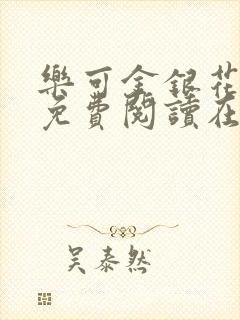 樂可金銀花
免費閱讀在
吴泰然